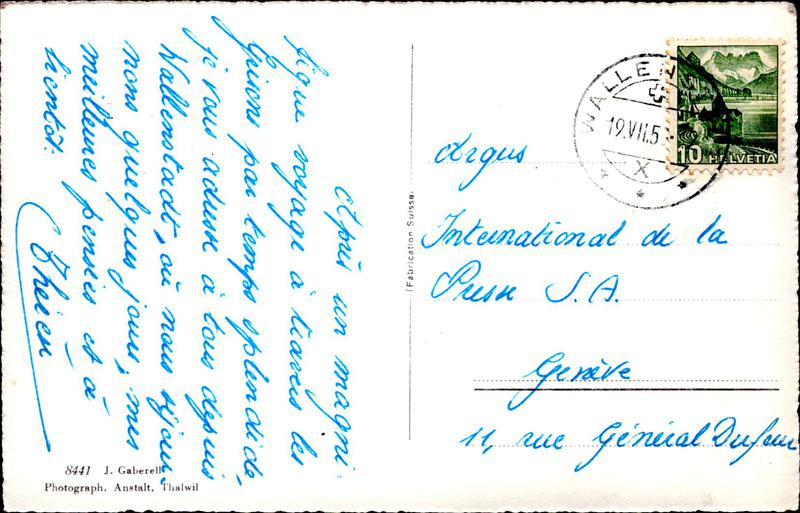 Après un magni-
fique voyage à travers les
Grisons par temps splendide,
je vous adresse à tous depuis
Wallenstadt, où nous séjour-
nons quelques jours, mes
meilleures pensées et à
bientôt.
8441 J. Gaberell
Photograph. Anstalt. Thalwil
(Fabrication Suisse.
WALLEN
19.VII.5
X
10 HELVETIA
Argus
International de la
Presse S.A.
Genève
11, rue Général Dufour